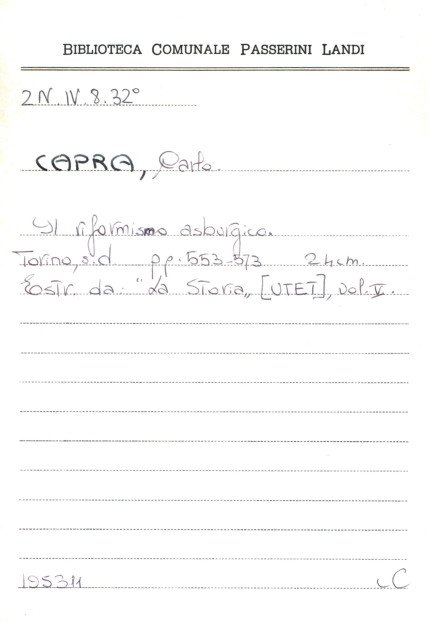 BIBLIOTECA COMUNALE PASSERINI LANDI
2N.IV.8.32°
CAPRA, Carlo.
Il riformismo asburgico.
Torino, s.d. pp. 553-573 24cm.
Estr. da: "La Storia„ [UTET], vol. V.
195311 C